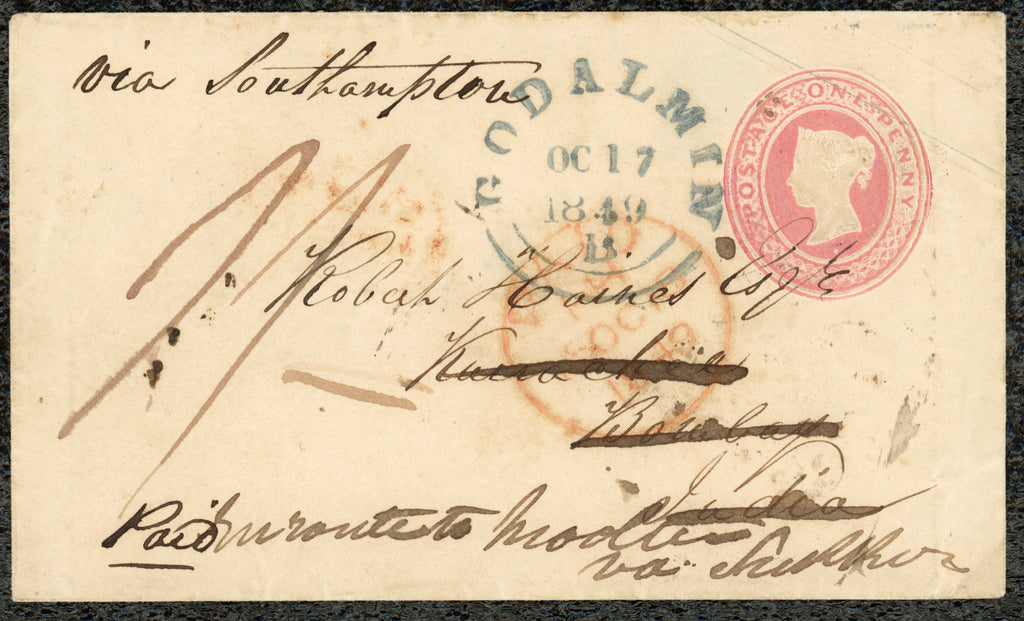 via Southampton
GODALMIN
OC 17
1849
B
POSTAGE ONE PENNY
PAID
OC
1849
Robert Haines Esqre
Kurrachee
Bombay
India
Paid
en route to Mooltan
via Sukkur